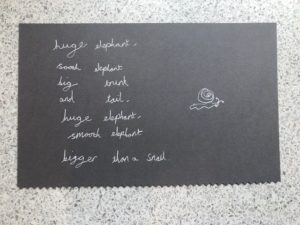 huge elephant.
smooth elephant
big trunk
and tail.
huge elephant.
smooth elephant
bigger than a snail